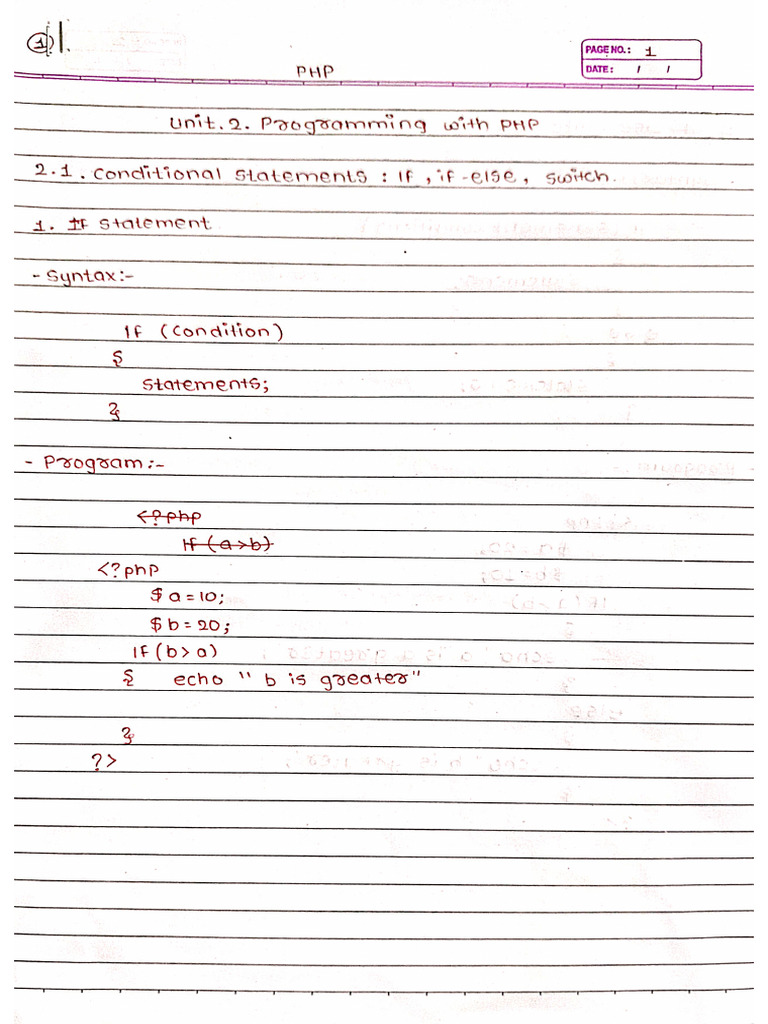 1 1.
PAGE NO.: 1
DATE: / /
PHP
Unit.2. Programming with PHP
2.1. Conditional statements : If, if-else, switch.
1. If statement
- Syntax:-
If (condition)
{
statements;
}
- Program:-
<?php
If (a>b)
<?php
$a=10;
$b=20;
If(b>a)
{ echo " b is greater"
}
?>